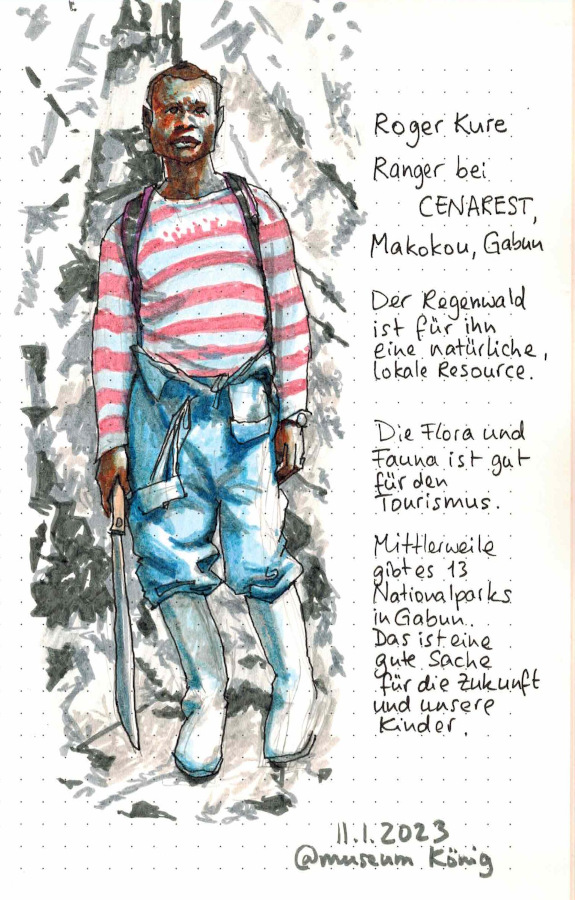 Roger Kure
Ranger bei
CENAREST,
Makokou, Gabun
Der Regenwald
ist für ihn
eine natürliche,
lokale Resource.
Die Flora und
Fauna ist gut
für den
Tourismus.
Mittlerweile
gibt es 13
Nationalparks
in Gabun.
Das ist eine
gute Sache
für die Zukunft
und unsere
Kinder.
11.1.2023
@museum König